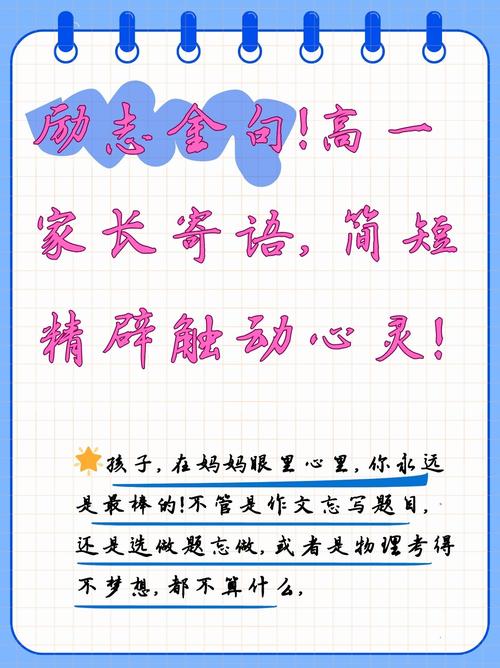 励志金句!高一
家长寄语,简短
精辟触动心灵!
孩子,在妈妈眼里心里,你永远
是最棒的!不管是作文忘写题目,
还是选做题忘做,或者是物理考得
不梦想,都不算什么,